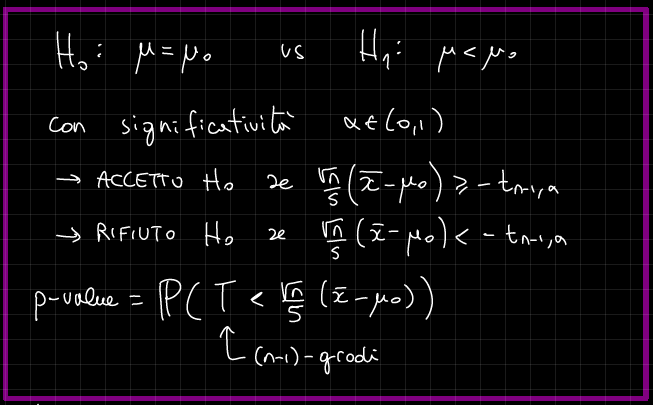 H₀: μ = μ₀ vs H₁: μ < μ₀
con significatività α ∈ (0,1)
→ ACCETTO H₀ se √n/S (x̄ - μ₀) ⩾ - tₙ₋₁,α
→ RIFIUTO H₀ se √n/S (x̄ - μ₀) < - tₙ₋₁,α
p-value = ℙ( T < √n/S (x̄ - μ₀) )
(n-1) - gradi